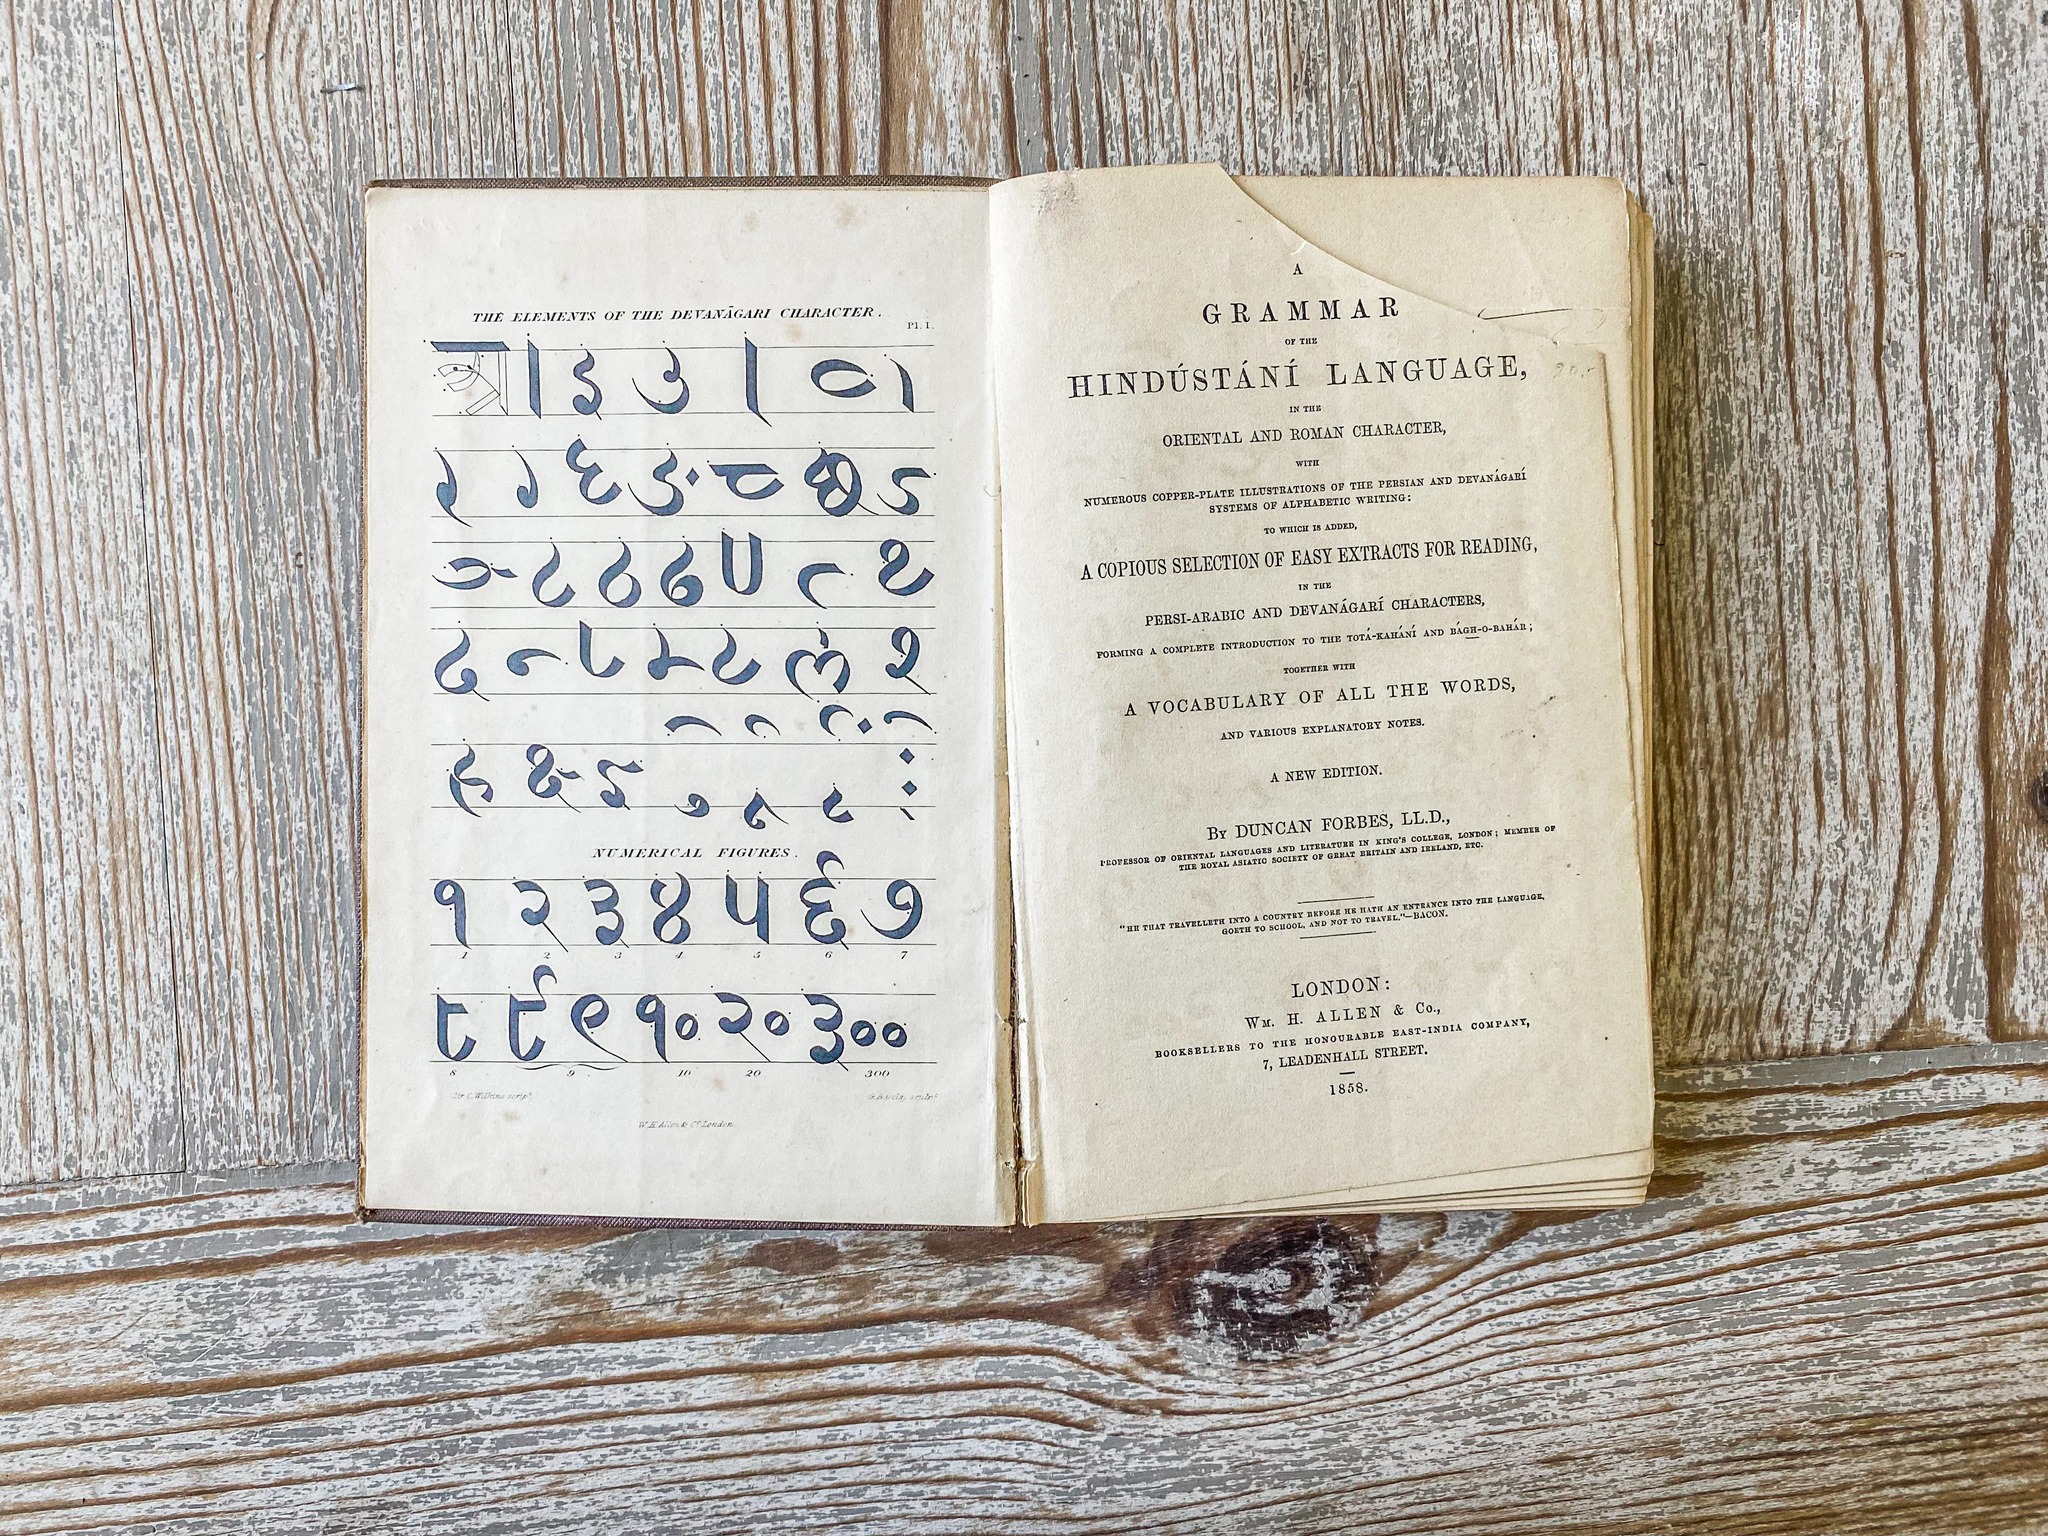 THE ELEMENTS OF THE DEVANĀGARI CHARACTER.
Pl. I.
NUMERICAL FIGURES.
१ २ ३ ४ ५ ६ ७
1 2 3 4 5 6 7
८ ९ ९ १० २० ३००
8 9 10 20 300
Sir C. Wilkins scripᵗ
W. H. Allen & Cº London.
A
GRAMMAR
OF THE
HINDÚSTÁNÍ LANGUAGE,
IN THE
ORIENTAL AND ROMAN CHARACTER,
WITH
NUMEROUS COPPER-PLATE ILLUSTRATIONS OF THE PERSIAN AND DEVANÁGARÍ
SYSTEMS OF ALPHABETIC WRITING:
TO WHICH IS ADDED,
A COPIOUS SELECTION OF EASY EXTRACTS FOR READING,
IN THE
PERSI-ARABIC AND DEVANÁGARÍ CHARACTERS,
FORMING A COMPLETE INTRODUCTION TO THE TOTÁ-KAHÁNÍ AND BÁGH-O-BAHÁR;
TOGETHER WITH
A VOCABULARY OF ALL THE WORDS,
AND VARIOUS EXPLANATORY NOTES.
A NEW EDITION.
BY DUNCAN FORBES, LL.D.,
PROFESSOR OF ORIENTAL LANGUAGES AND LITERATURE IN KING'S COLLEGE, LONDON; MEMBER OF
THE ROYAL ASIATIC SOCIETY OF GREAT BRITAIN AND IRELAND, ETC.
"HE THAT TRAVELLETH INTO A COUNTRY BEFORE HE HATH AN ENTRANCE INTO THE LANGUAGE,
GOETH TO SCHOOL, AND NOT TO TRAVEL."—BACON.
LONDON:
WM. H. ALLEN & Co.,
BOOKSELLERS TO THE HONOURABLE EAST-INDIA COMPANY,
7, LEADENHALL STREET.
1858.